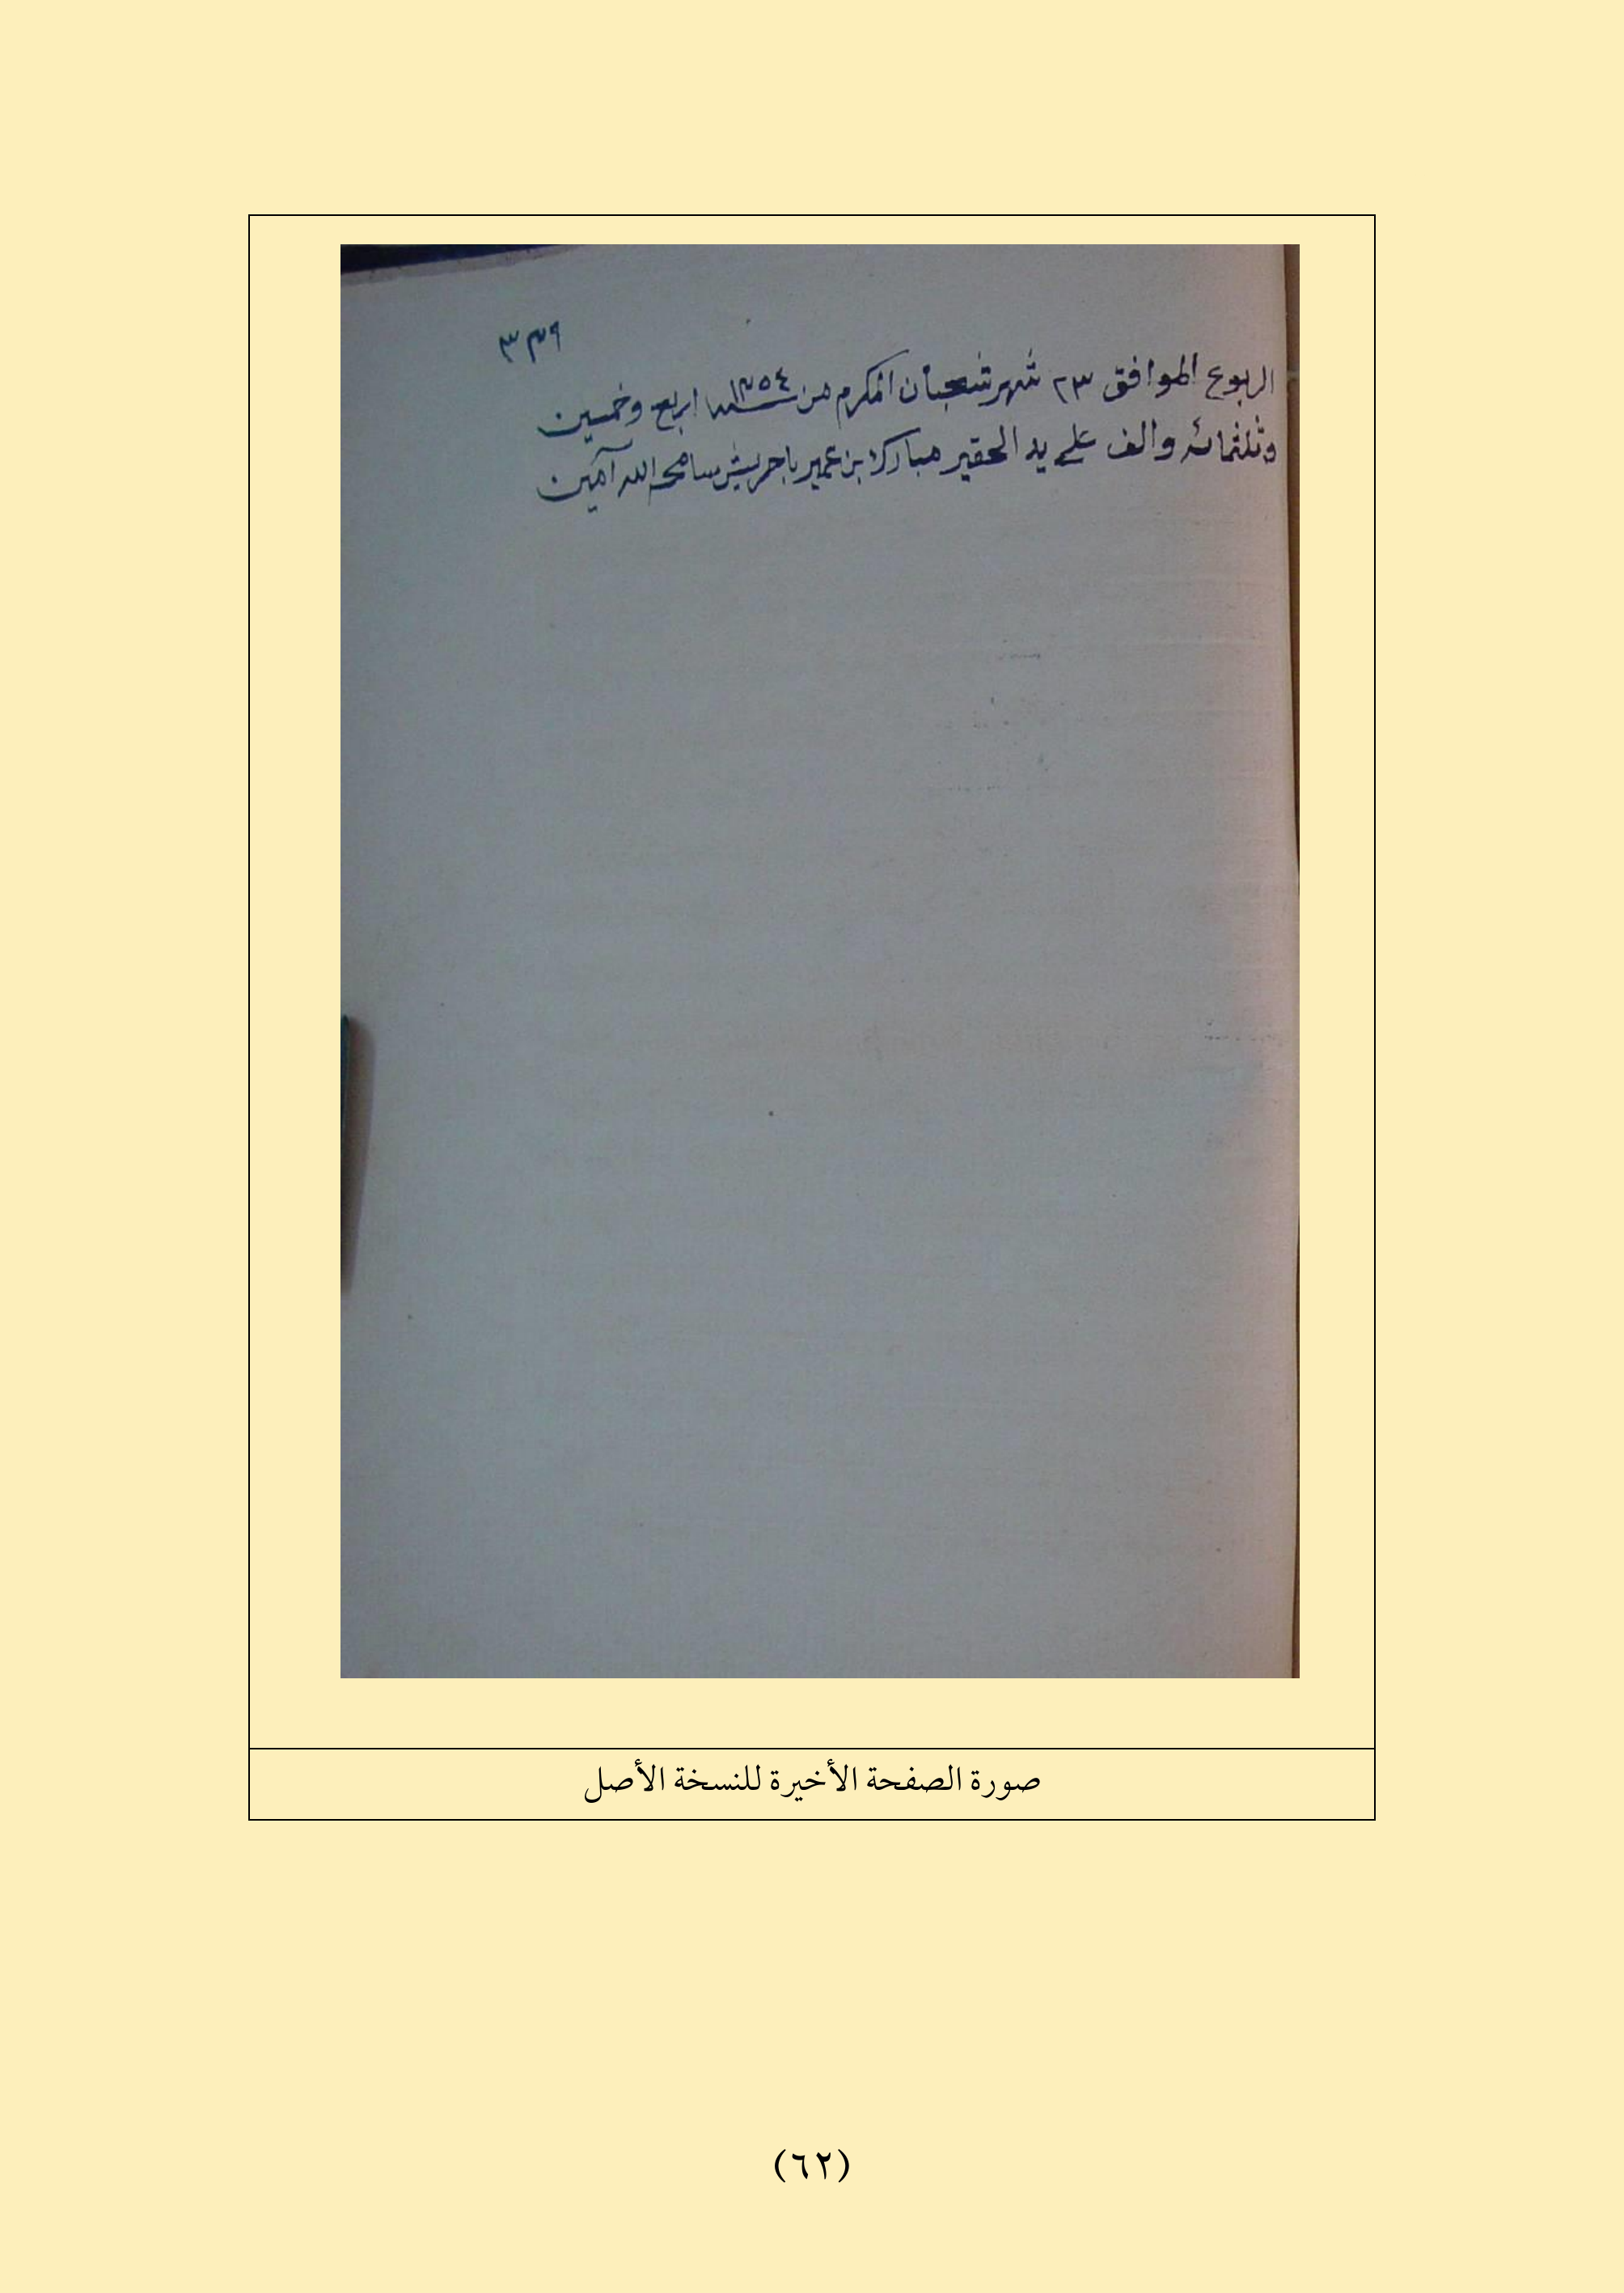 ٣٣٩
الربوع الموافق ٢٣ شهر شعبان المكرم من سنة ١٣٥٤ اربع وخمسين
وثلثمائه والف على يد الحقير مبارك بن عمير باحريش سامحه الله آمين
صورة الصفحة الأخيرة للنسخة الأصل
(٦٢)